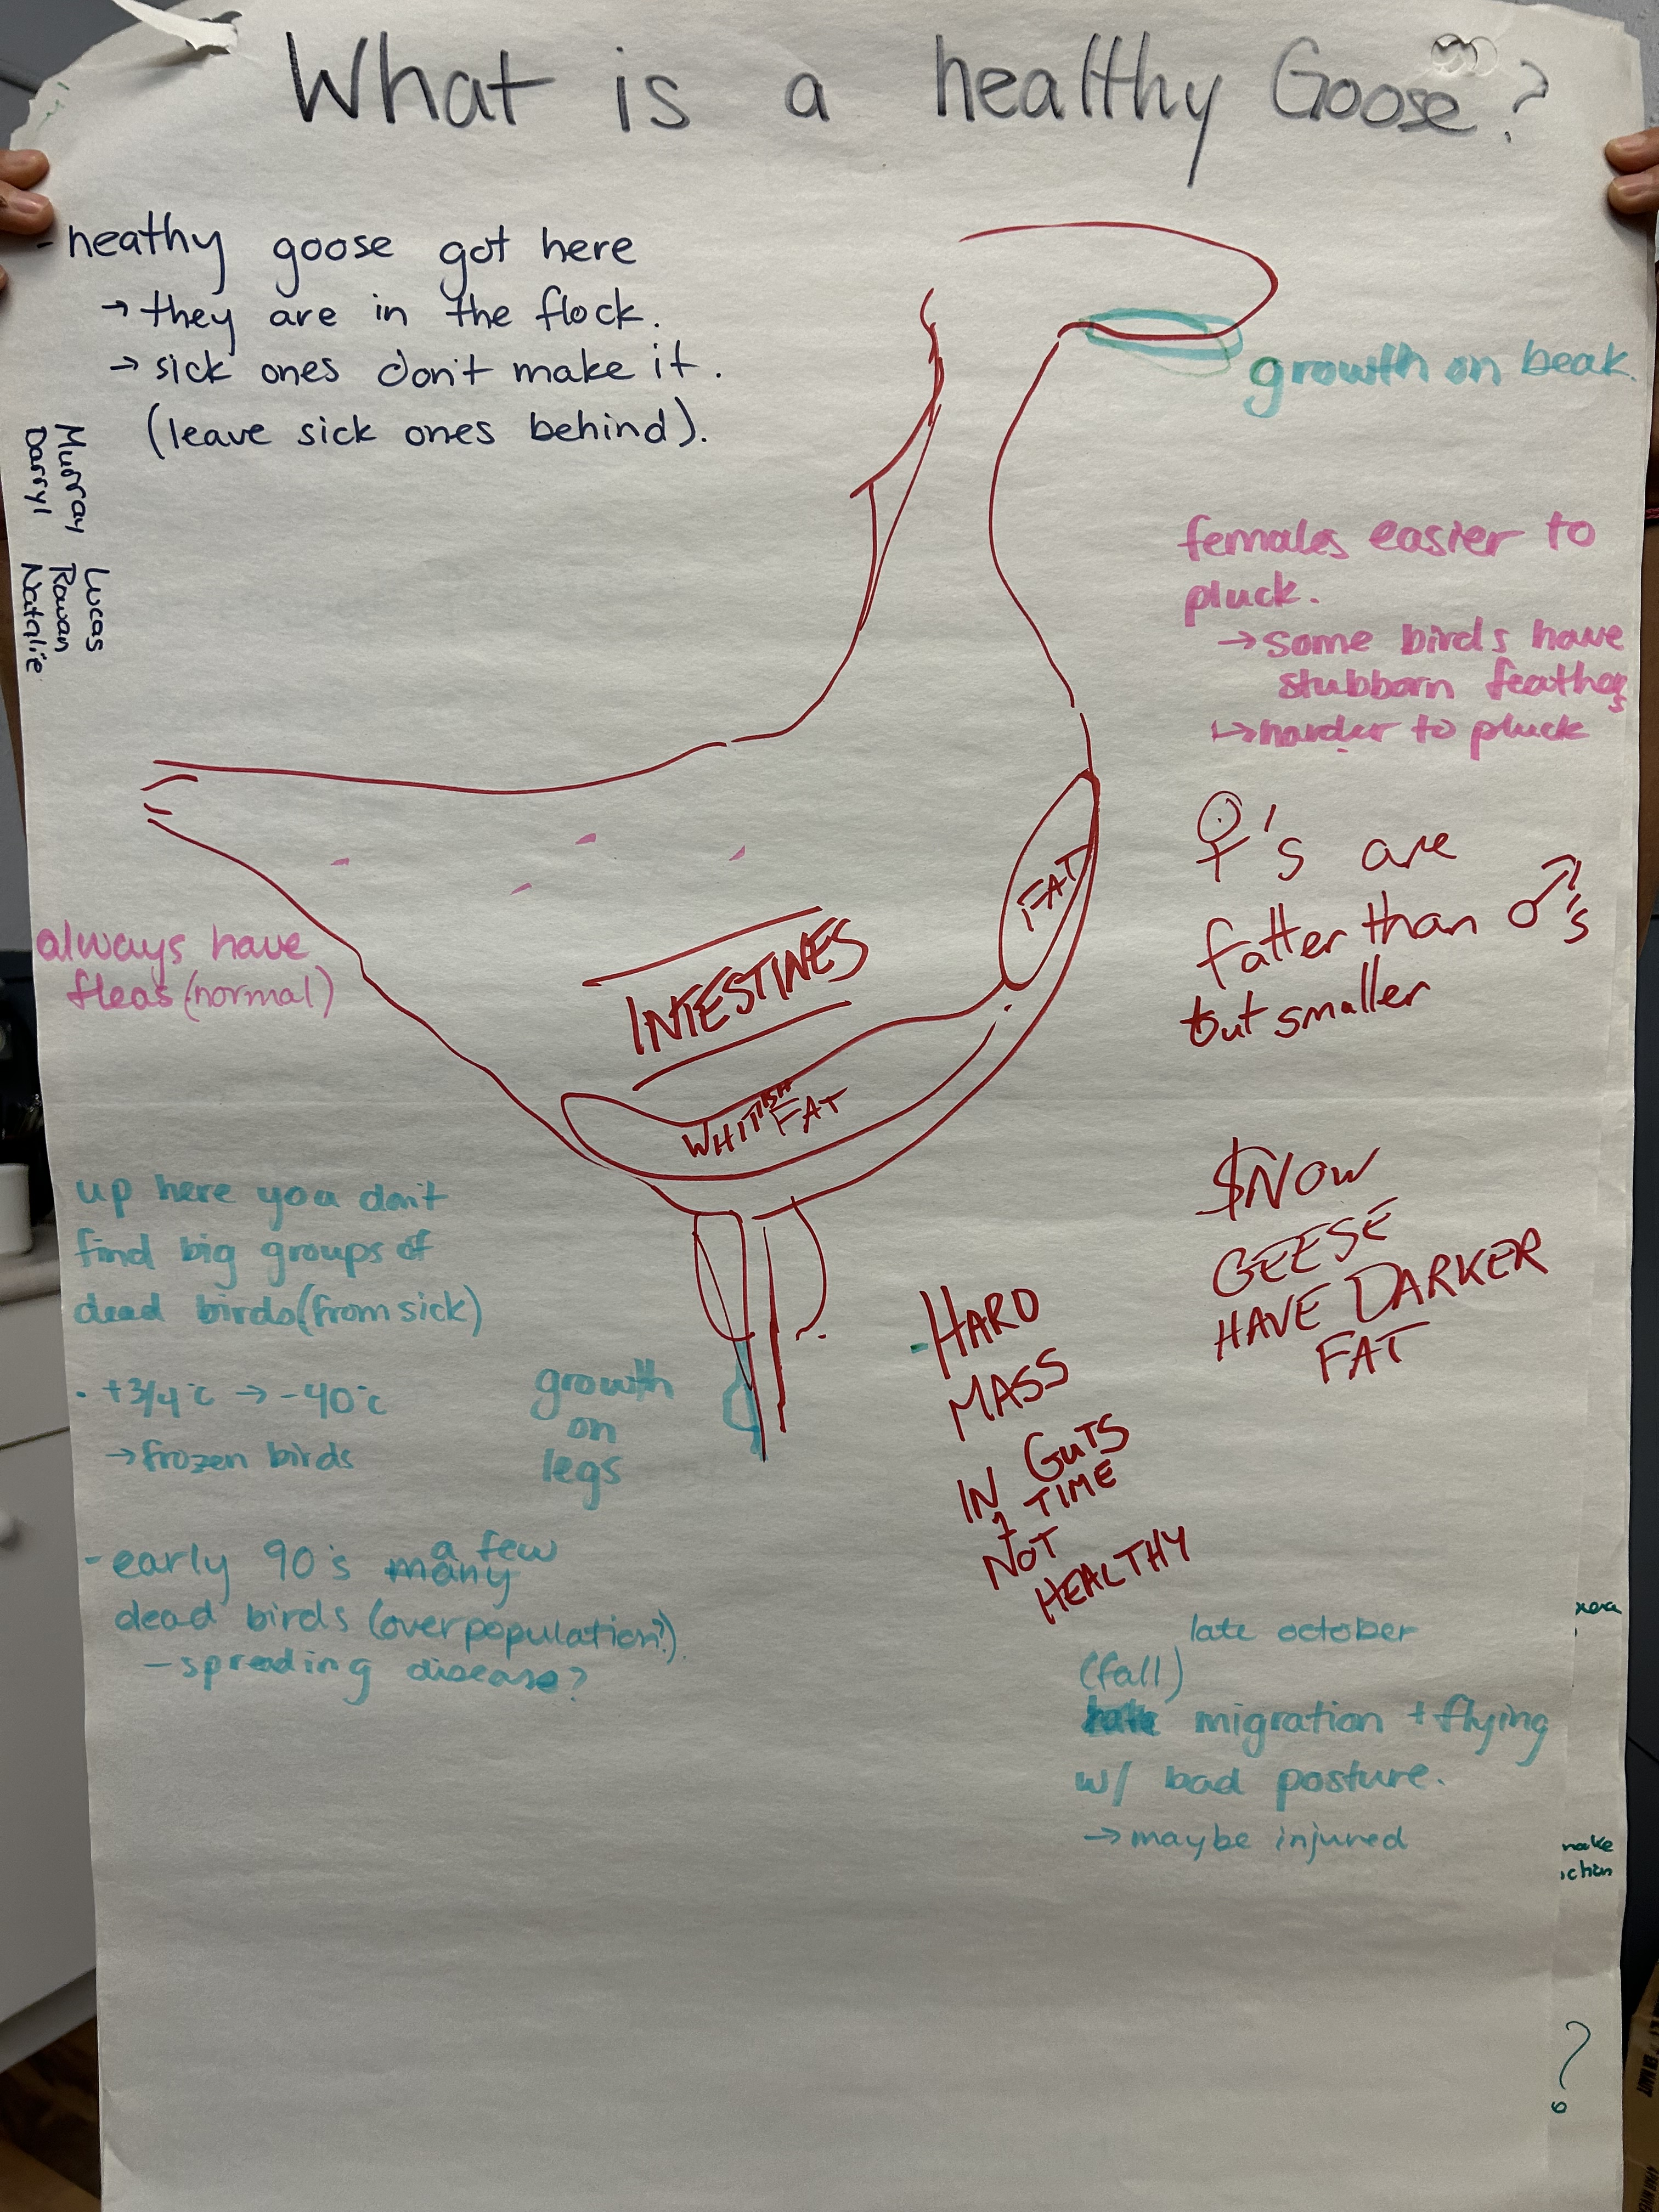 What is a healthy Goose?
- heathy goose got here
→ they are in the flock.
→ sick ones don't make it.
(leave sick ones behind).
Murray
Darryl
Lucas
Rowan
Natalie
growth on beak.
females easier to
pluck.
→ some birds have
stubborn feathers
↳ harder to pluck
♀'s are
fatter than ♂'s
but smaller
FAT
INTESTINES
WHITISH
FAT
always have
fleas (normal)
SNOW
GEESE
HAVE DARKER
FAT
up here you don't
find big groups of
dead birds (from sick)
• +3/4°c → -40°c
→ frozen birds
growth
on
legs
- HARD
MASS
IN GUTS
1 TIME
NOT
HEALTHY
- early 90's many a few
dead birds (overpopulation?).
- spreading disease?
late october
(fall)
migration + flying
w/ bad posture.
→ maybe injured
?